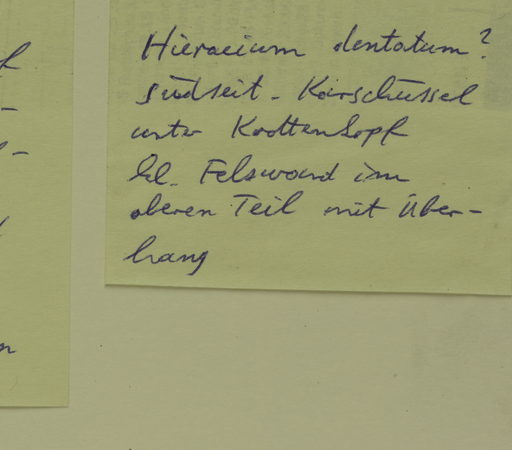 Hieracium dentatum?
südseit. Karschüssel
unter Krottenkopf
kl. Felswand im
oberen Teil mit Über-
hang